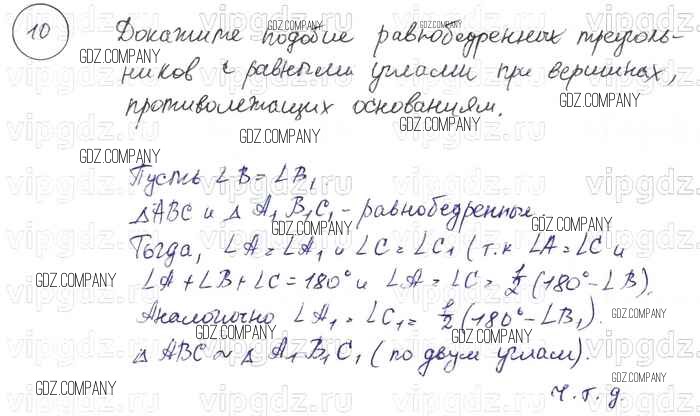 10 Докажите подобие равнобедренных треуголь-
ников с равными углами при вершинах,
противолежащих основаниям.
Пусть ∠B = ∠B₁
△ABC и △ A₁ B₁C₁ - равнобедренные.
Тогда, ∠A = ∠A₁ и ∠C = ∠C₁ (т.к ∠A = ∠C и
∠A + ∠B + ∠C = 180° и ∠A = ∠C = 1/2 (180° - ∠B).
Аналогично ∠A₁ = ∠C₁ = 1/2 (180° - ∠B₁).
△ ABC ~ △ A₁ B₁ C₁ (по двум углам).
ч.т.д.
GDZ.COMPANY
vipgdz.ru